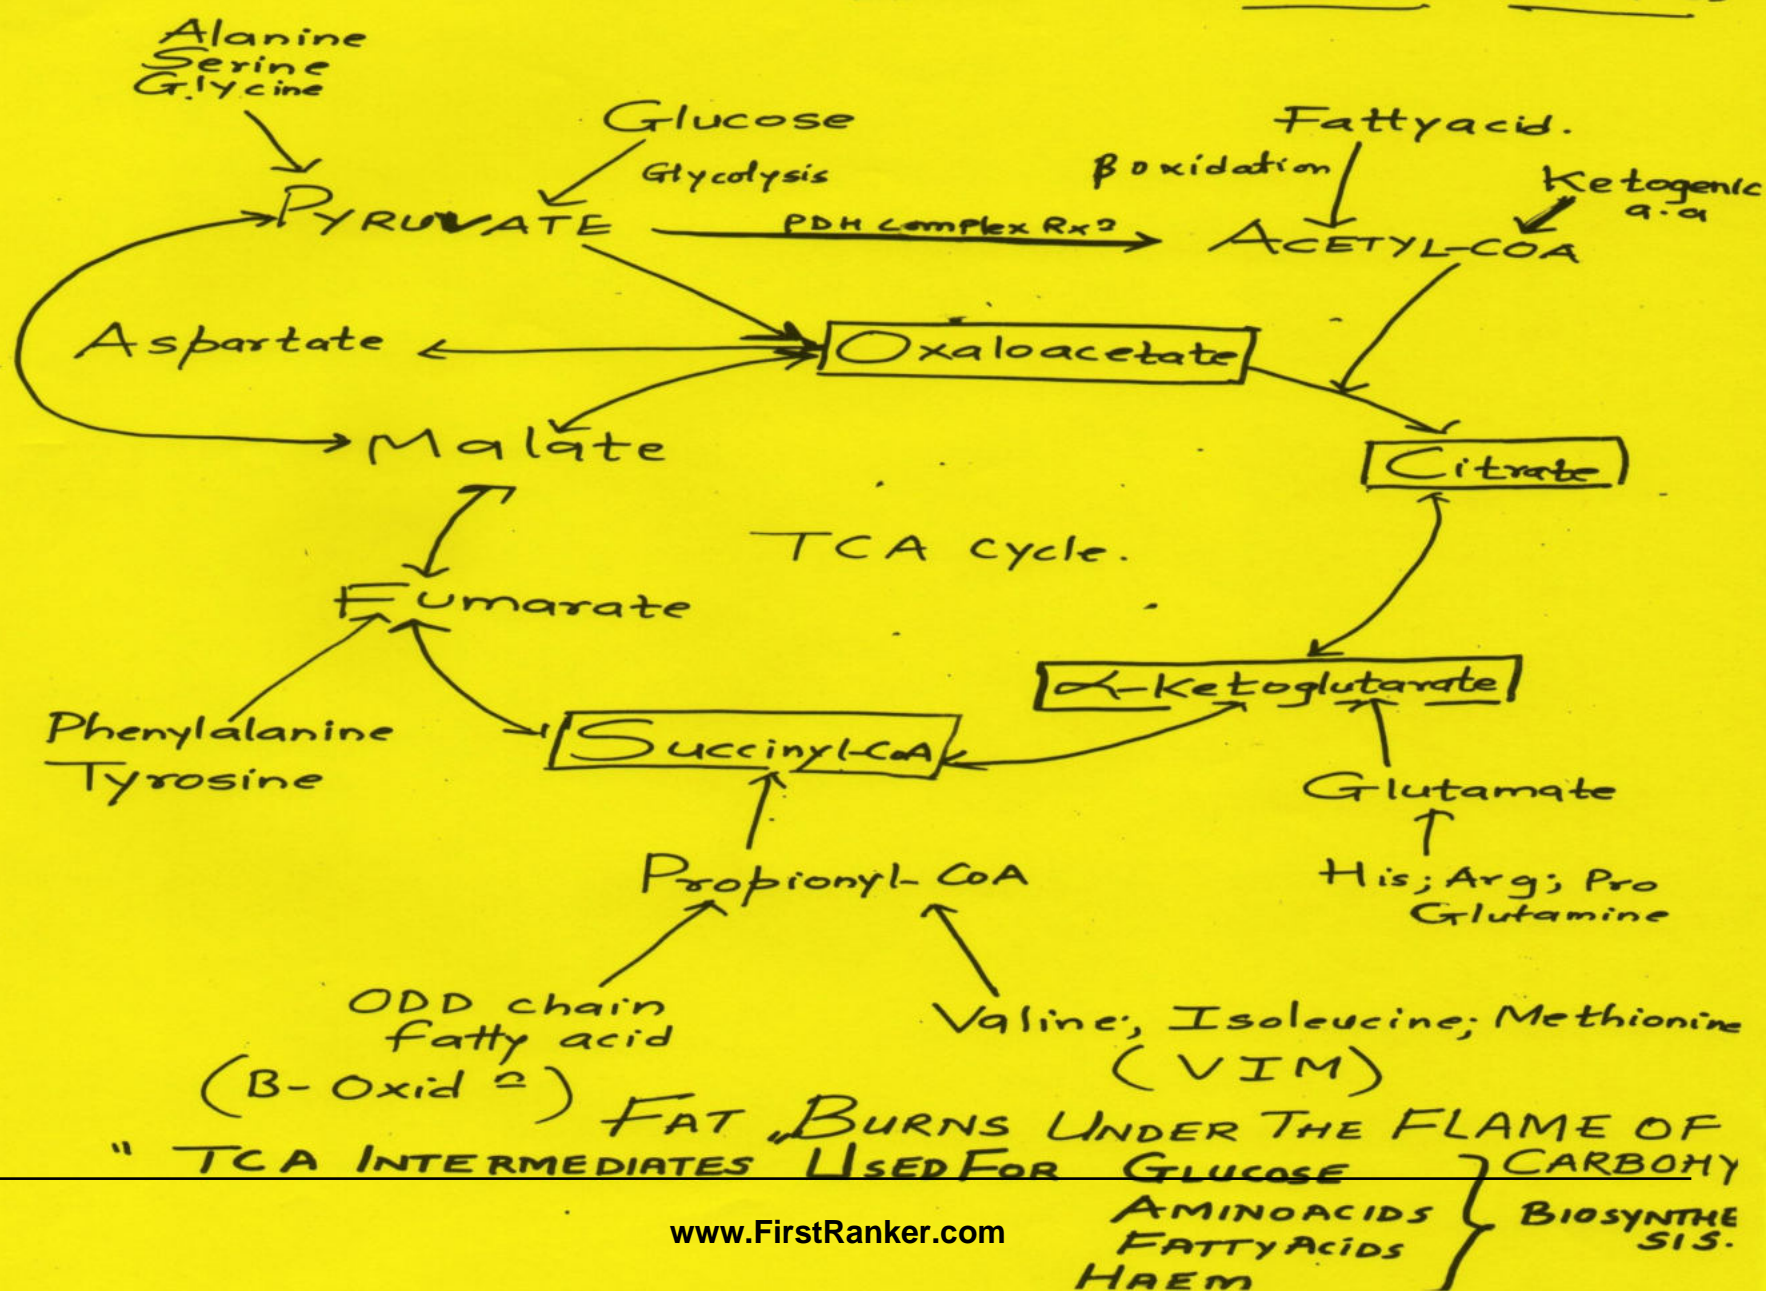 Alanine
Serine
Glycine
Glucose
Fattyacid.
Glycolysis
β oxidation
Ketogenic
a.a
PYRUVATE
PDH complex Rxⁿ
ACETYL-COA
Aspartate
Oxaloacetate
Malate
Citrate
TCA cycle.
Fumarate
α-Ketoglutarate
Phenylalanine
Tyrosine
Succinyl-CoA
Glutamate
Propionyl-CoA
His; Arg; Pro
Glutamine
ODD chain
fatty acid
(B-Oxidⁿ)
Valine; Isoleucine; Methionine
(VIM)
FAT BURNS UNDER THE FLAME OF
CARBOHY
" TCA INTERMEDIATES " USED FOR GLUCOSE
AMINOACIDS
FATTY ACIDS
HAEM
BIOSYNTHE
SIS.
www.FirstRanker.com